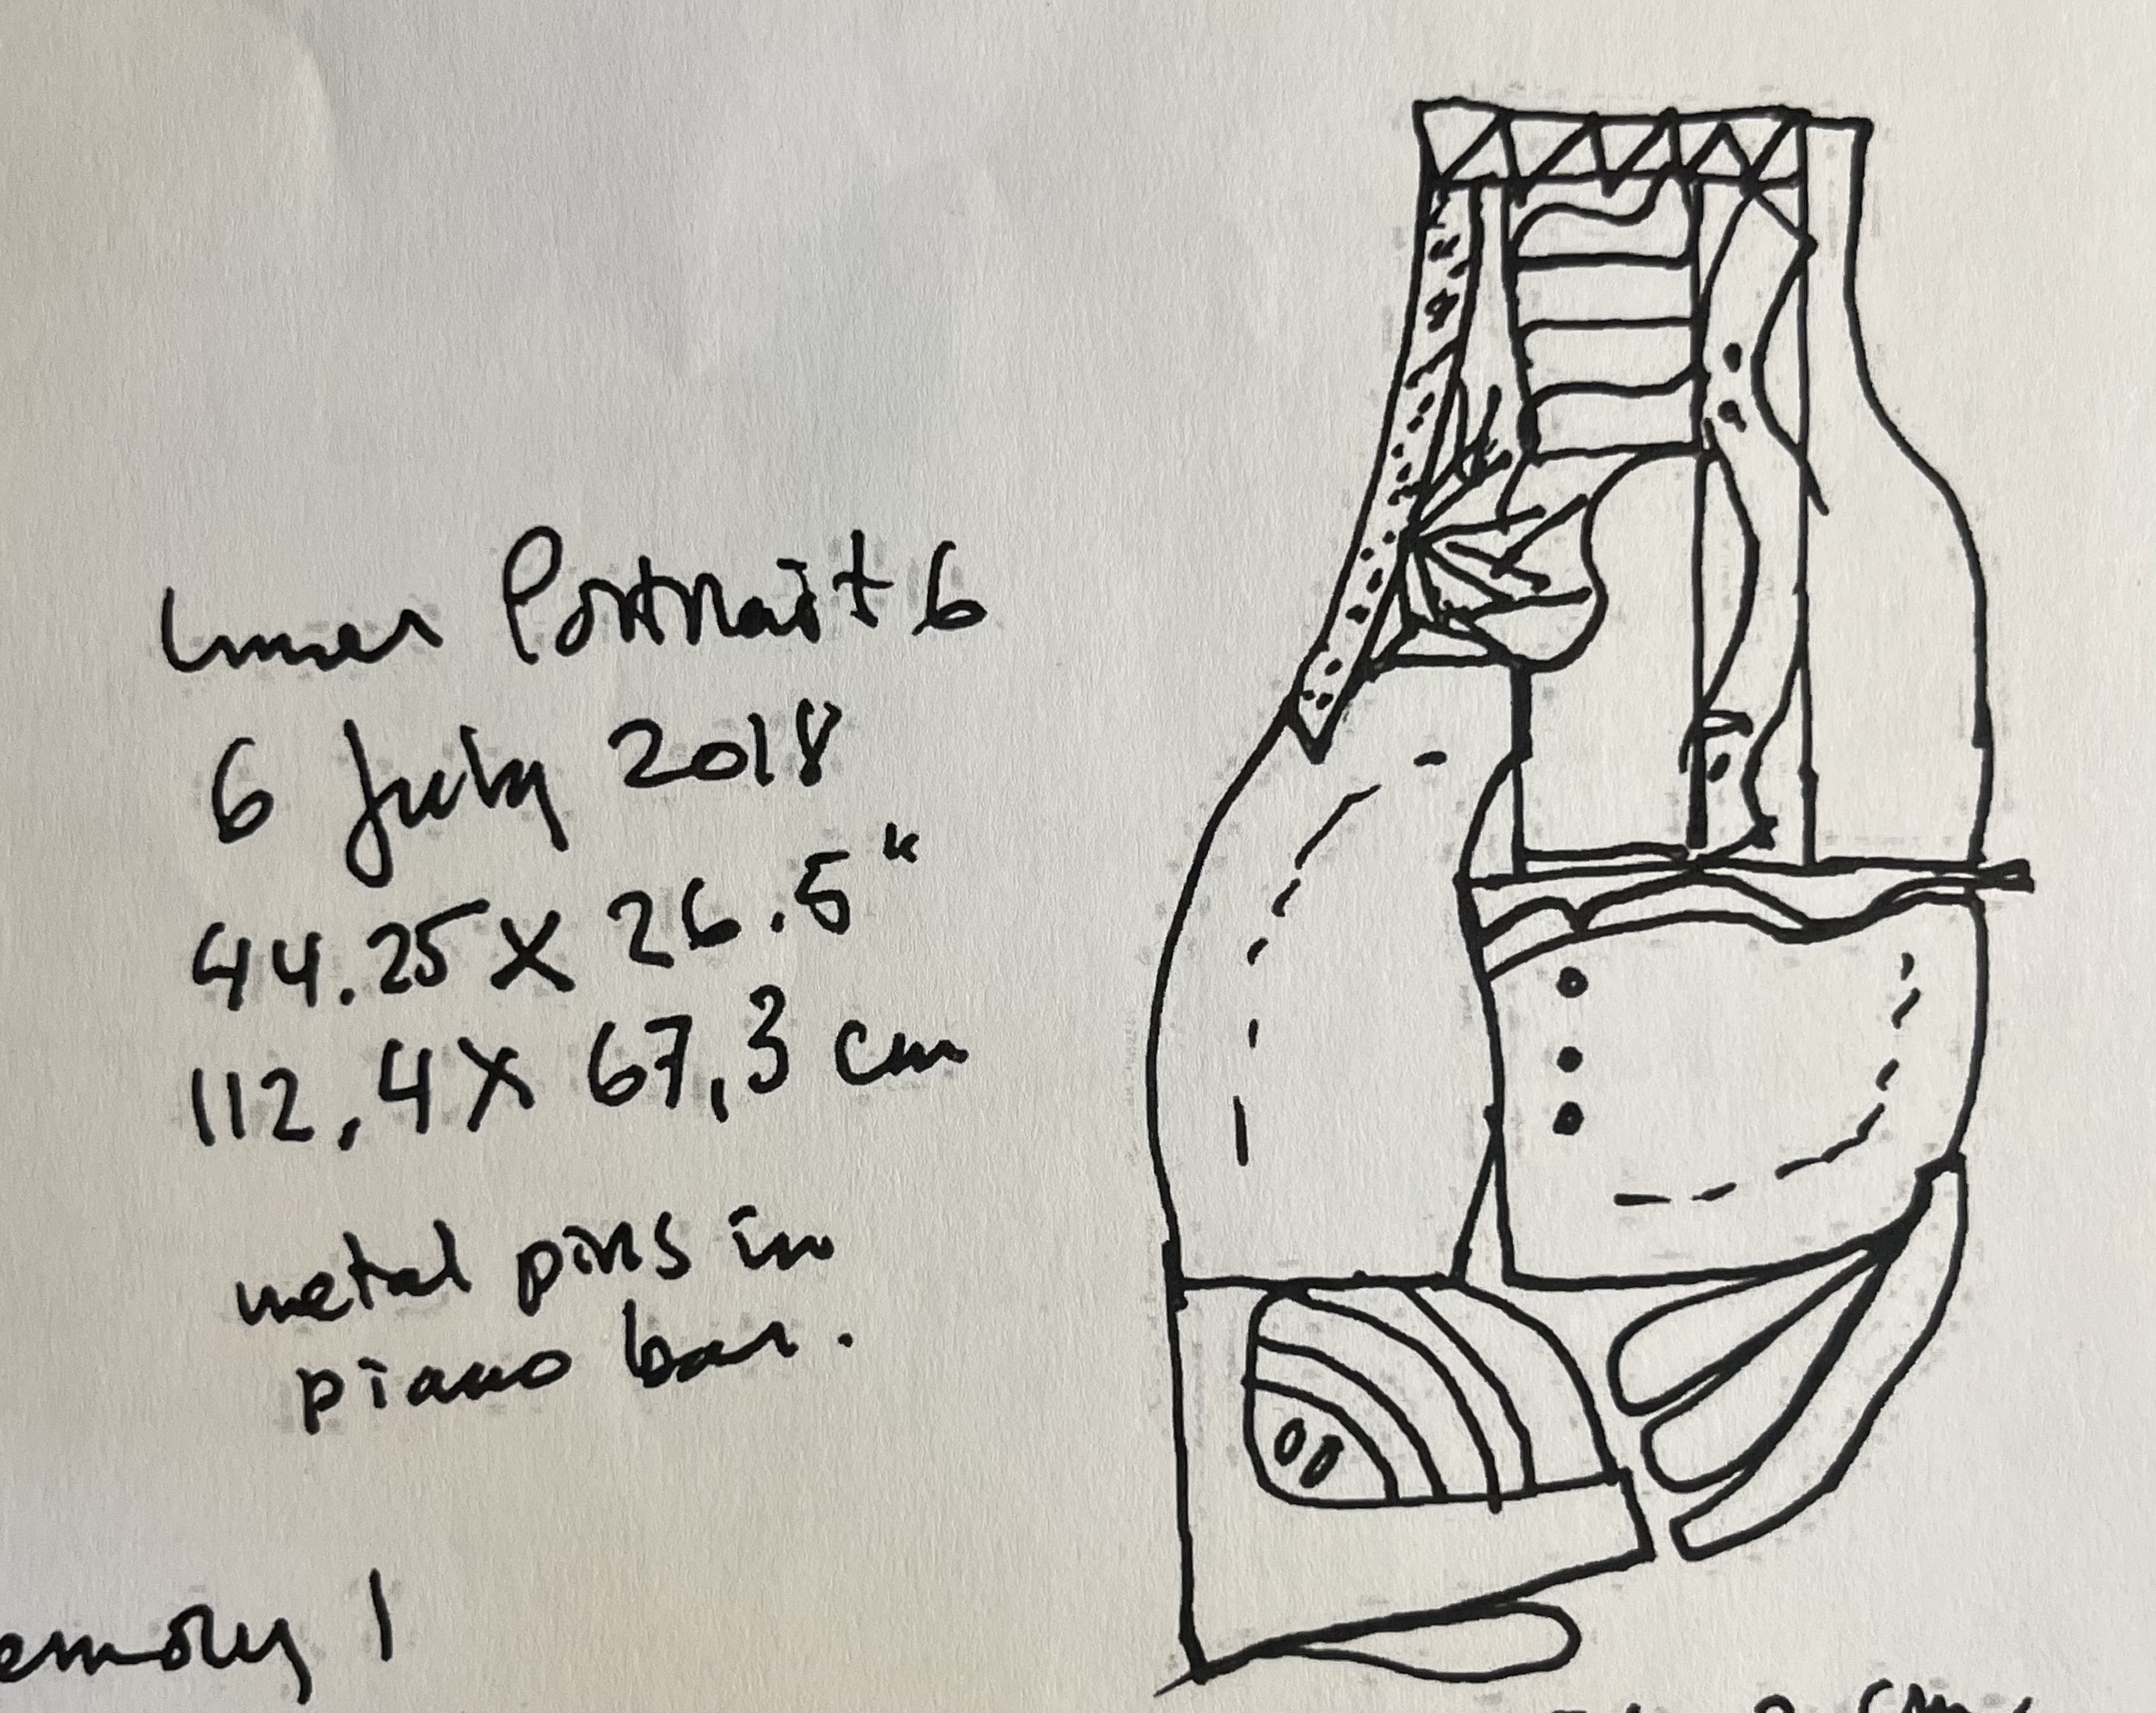 Inner Portrait 6
6 July 2018
44.25 X 26.5"
112,4 X 67,3 cm
metal pins in
piano bar.
emory 1